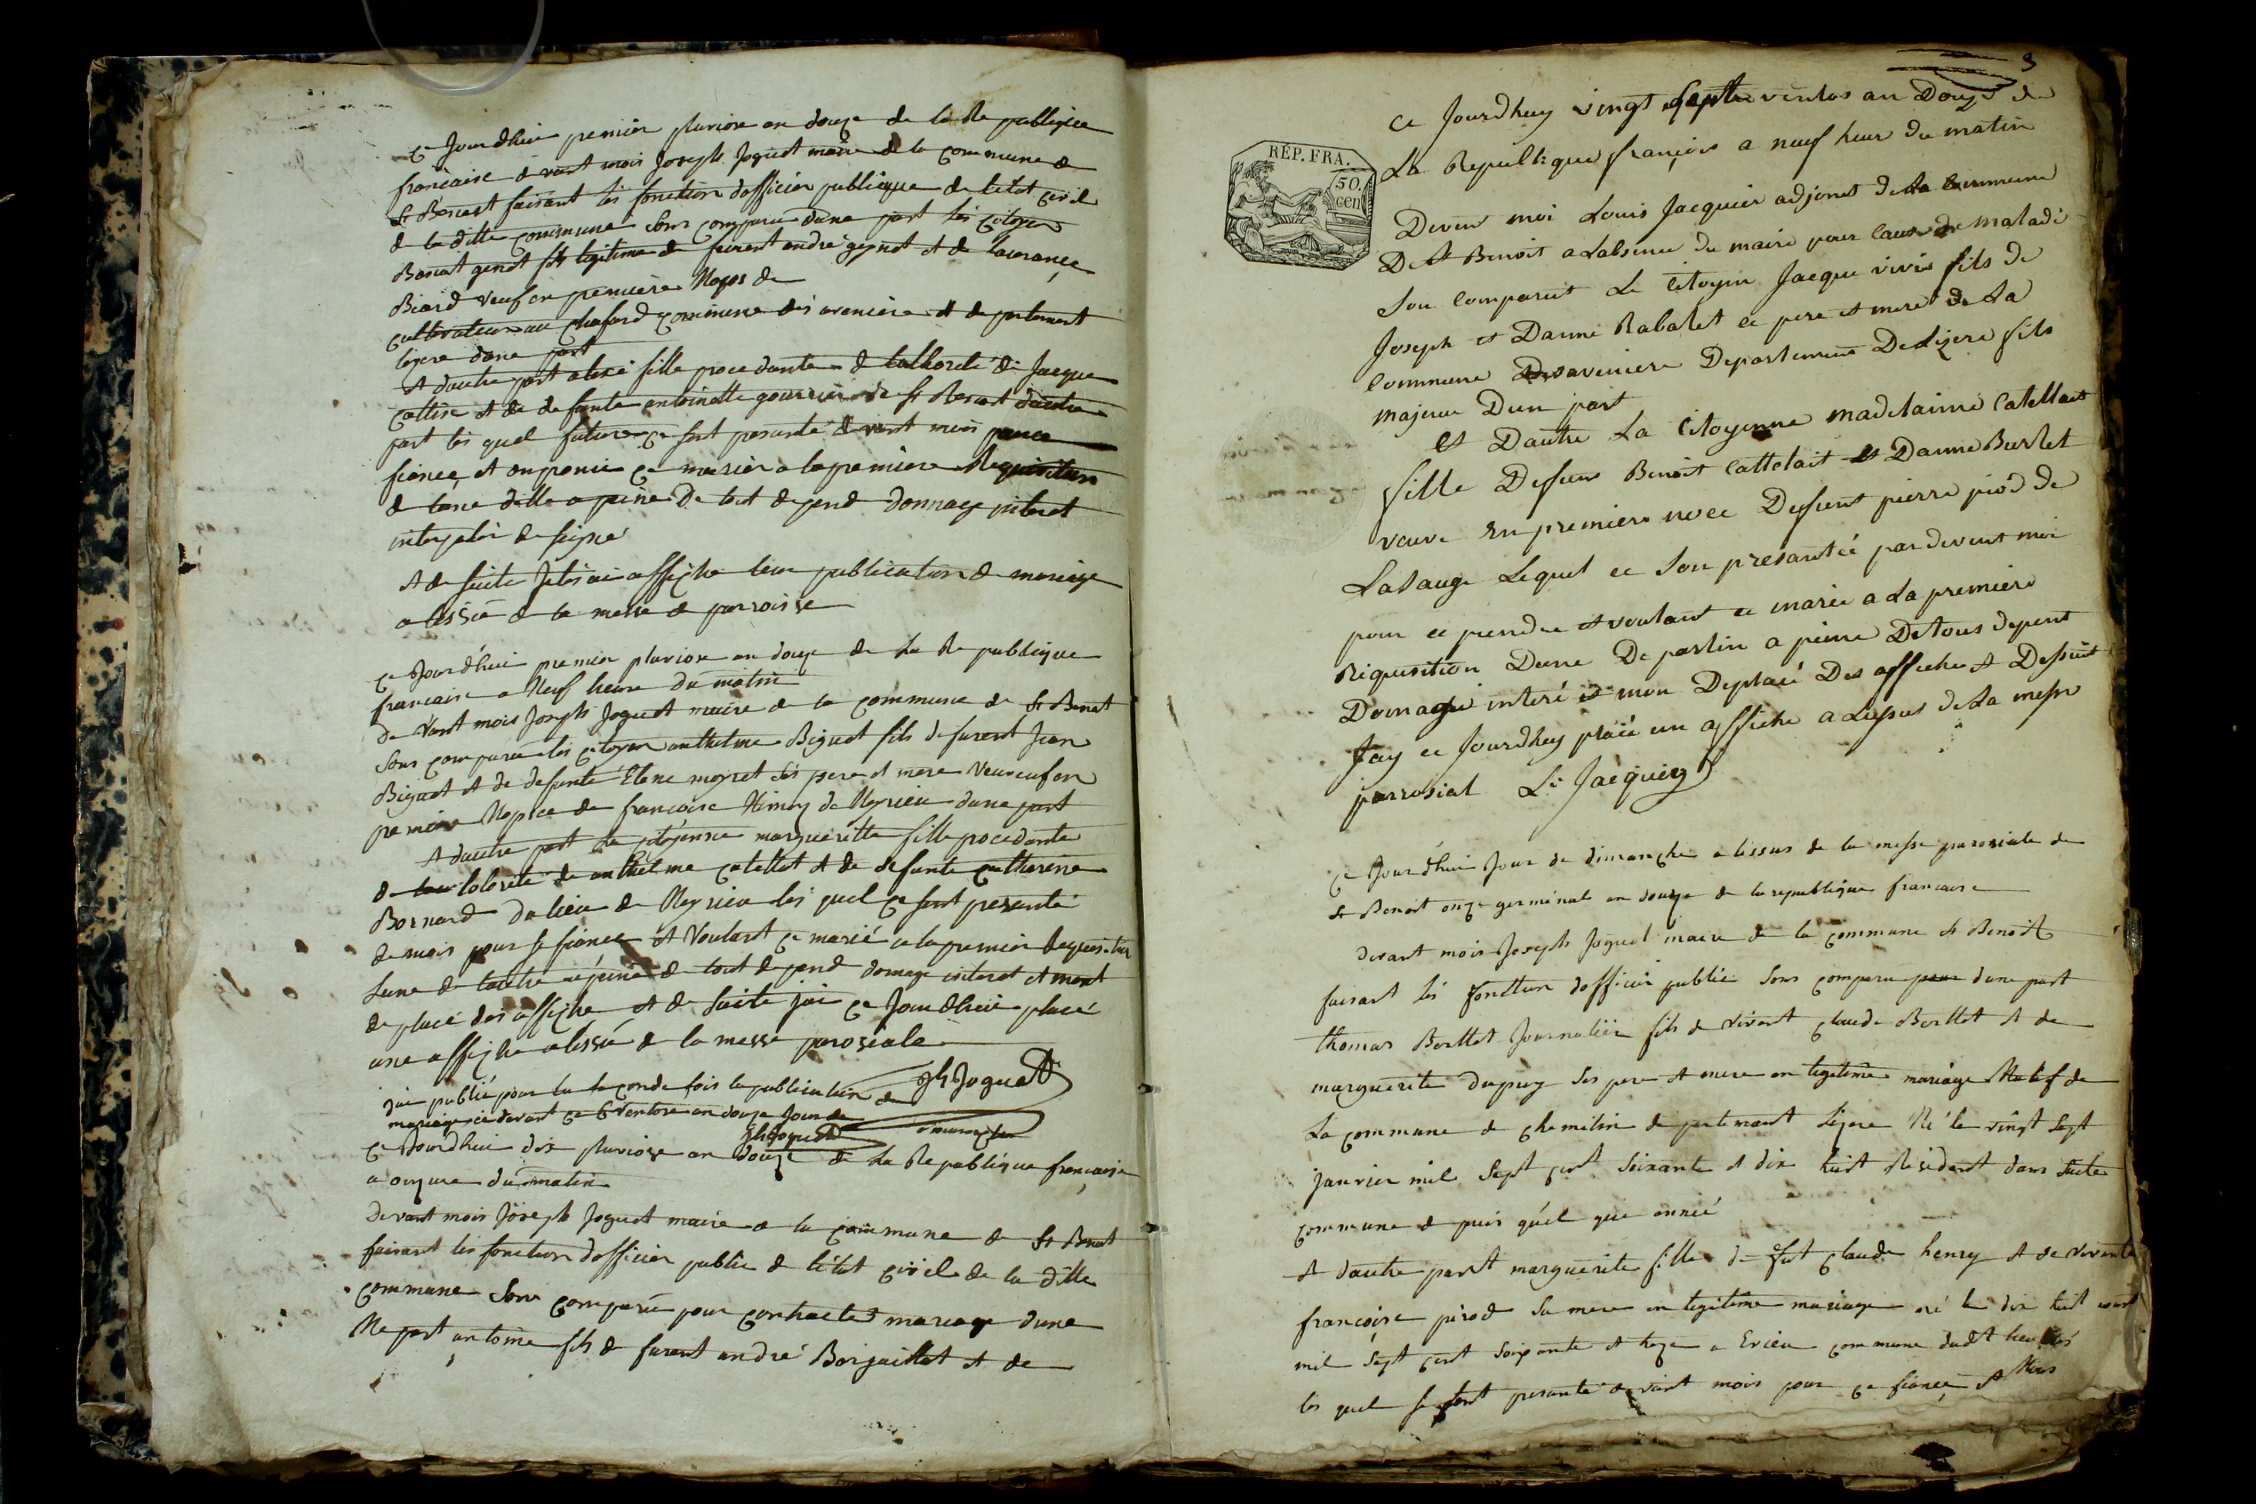 ce Jourdhui premier pluviose an douze de la Republique
francaise de vant mois Joseph Joguet maire de la commune de
St Benoit faisant les fonction dofficier publique de letat civil
de la ditte commune sons comparu dune part les citoyen
genet fils legitime de furent andré genet et de
Biard veuf en premiere Noces de
cultivateur au commune des avenière de partement
lizere dune part
et dautre part fille procedante de de Jacque
et de defunte antoinette de St Benoit dautre
part les quel future ce sont presanté de vant mois
fiancé, et on promi ce marier a la premiere Requisition
de lune delle a peine De tout depend donmage interet
de signé
et de suite Jelesai affiche leur publication de mariage
a lissue de la messe de parroisse
ce Jourdhui premier pluviose an douze de La Republique
francaise a Neuf heure du matin
de Vant mois Joseph Joguet maire de la commune de St Benoit
sons comparu les citoyen anthelme Biguet fils de furent Jean
Biguet et de defunte Elene moyret ses pere et mere veuf en
premiere Nopce de francoise de dune part
et dautre part La citoyenne margueritte fille procedante
de de anthelme catellet et de defunte catherine
Bornard du lieu de les quel ce sont presanté
de mois pour se fiancé et Voulant ce marié a la premier Requisition
Lune de lautre a peine de tout depend domage interet et mont
de placé des affiche et de suite jai ce Jourdhui placé
une affiche a lissue de la messe parosiale
jai publié pour la segonde fois la publication de Jh Joguet
mariage ci devant ce 6 Ventose an douze Jour de
Jh Joguet
ce Jourdhui dix pluviose an douze de La Republique francaise
a du matin
devant mois Joseph Joguet maire de la commune de St Benoit
faisant les fonction dofficier public de létat civile de la ditte
commune Sons comparu pour contracter mariage dune
Ne part antoine fils de furent andré Borjaillet et de
3
RÉP. FRA.
50.
cen
ce Jourdhuy vingt septe ventos an Douze de
La Republique françois a neuf heur du matin
Devent moi Louis Jacquier adjoint de La commune
De St Benoit a Labsence du maire pour cause de maladi
Son comparut Le Citoyin Jacque vivié fils de
Joseph et Danne Rabalet ce pere et mere de La
Commune Desaveniere Departement De Lizere fils
majeur Dun part
et Dautre La Citoyenne madelaine Catellait
fille Defunt Benoit Cattelait et Danne Burlet
veuve En premiere noce Defunt pierre piod de
Lasauge Lequel ce Son presantéé pardevent moi
pour ce prendre et voulant ce mariée a La premiere
Riquisition Dune De partin a peine De tous depent
Domagé interé et mon Deplacé Des affiche et Desuit
Jay ce Jourdhuy placé un affiche a Lissus de La messe
parrosial Ls Jacquier
ce Jourdhui Jour de dimanche a lissus de la messe parosiale de
St Benoit onze germinal an douze de la republique francaise
devant mois Joseph Joguet maire de la commune St Benoit
faisant les fonction dofficier public sons comparu pour dune part
thomas Borllet Journalier fils de vivant claude Borllet et de
marguerite dupuy ses pere et mere en legitime mariage Natif de
La commune de chemilin de partement Lizere Né le vingt sept
janvier mil sept cent soixante et dix huit Résident dans suite
commune de puis quel que année
et dautre part marguerite fille de fut claude henry et de vivante
francoise pirod sa mere en legitime mariage né le dix huit
mil sept cent soixante et treze a Evieu commune dudt lieu
les quel se sont presanté devant mois pour ce fiancé, et